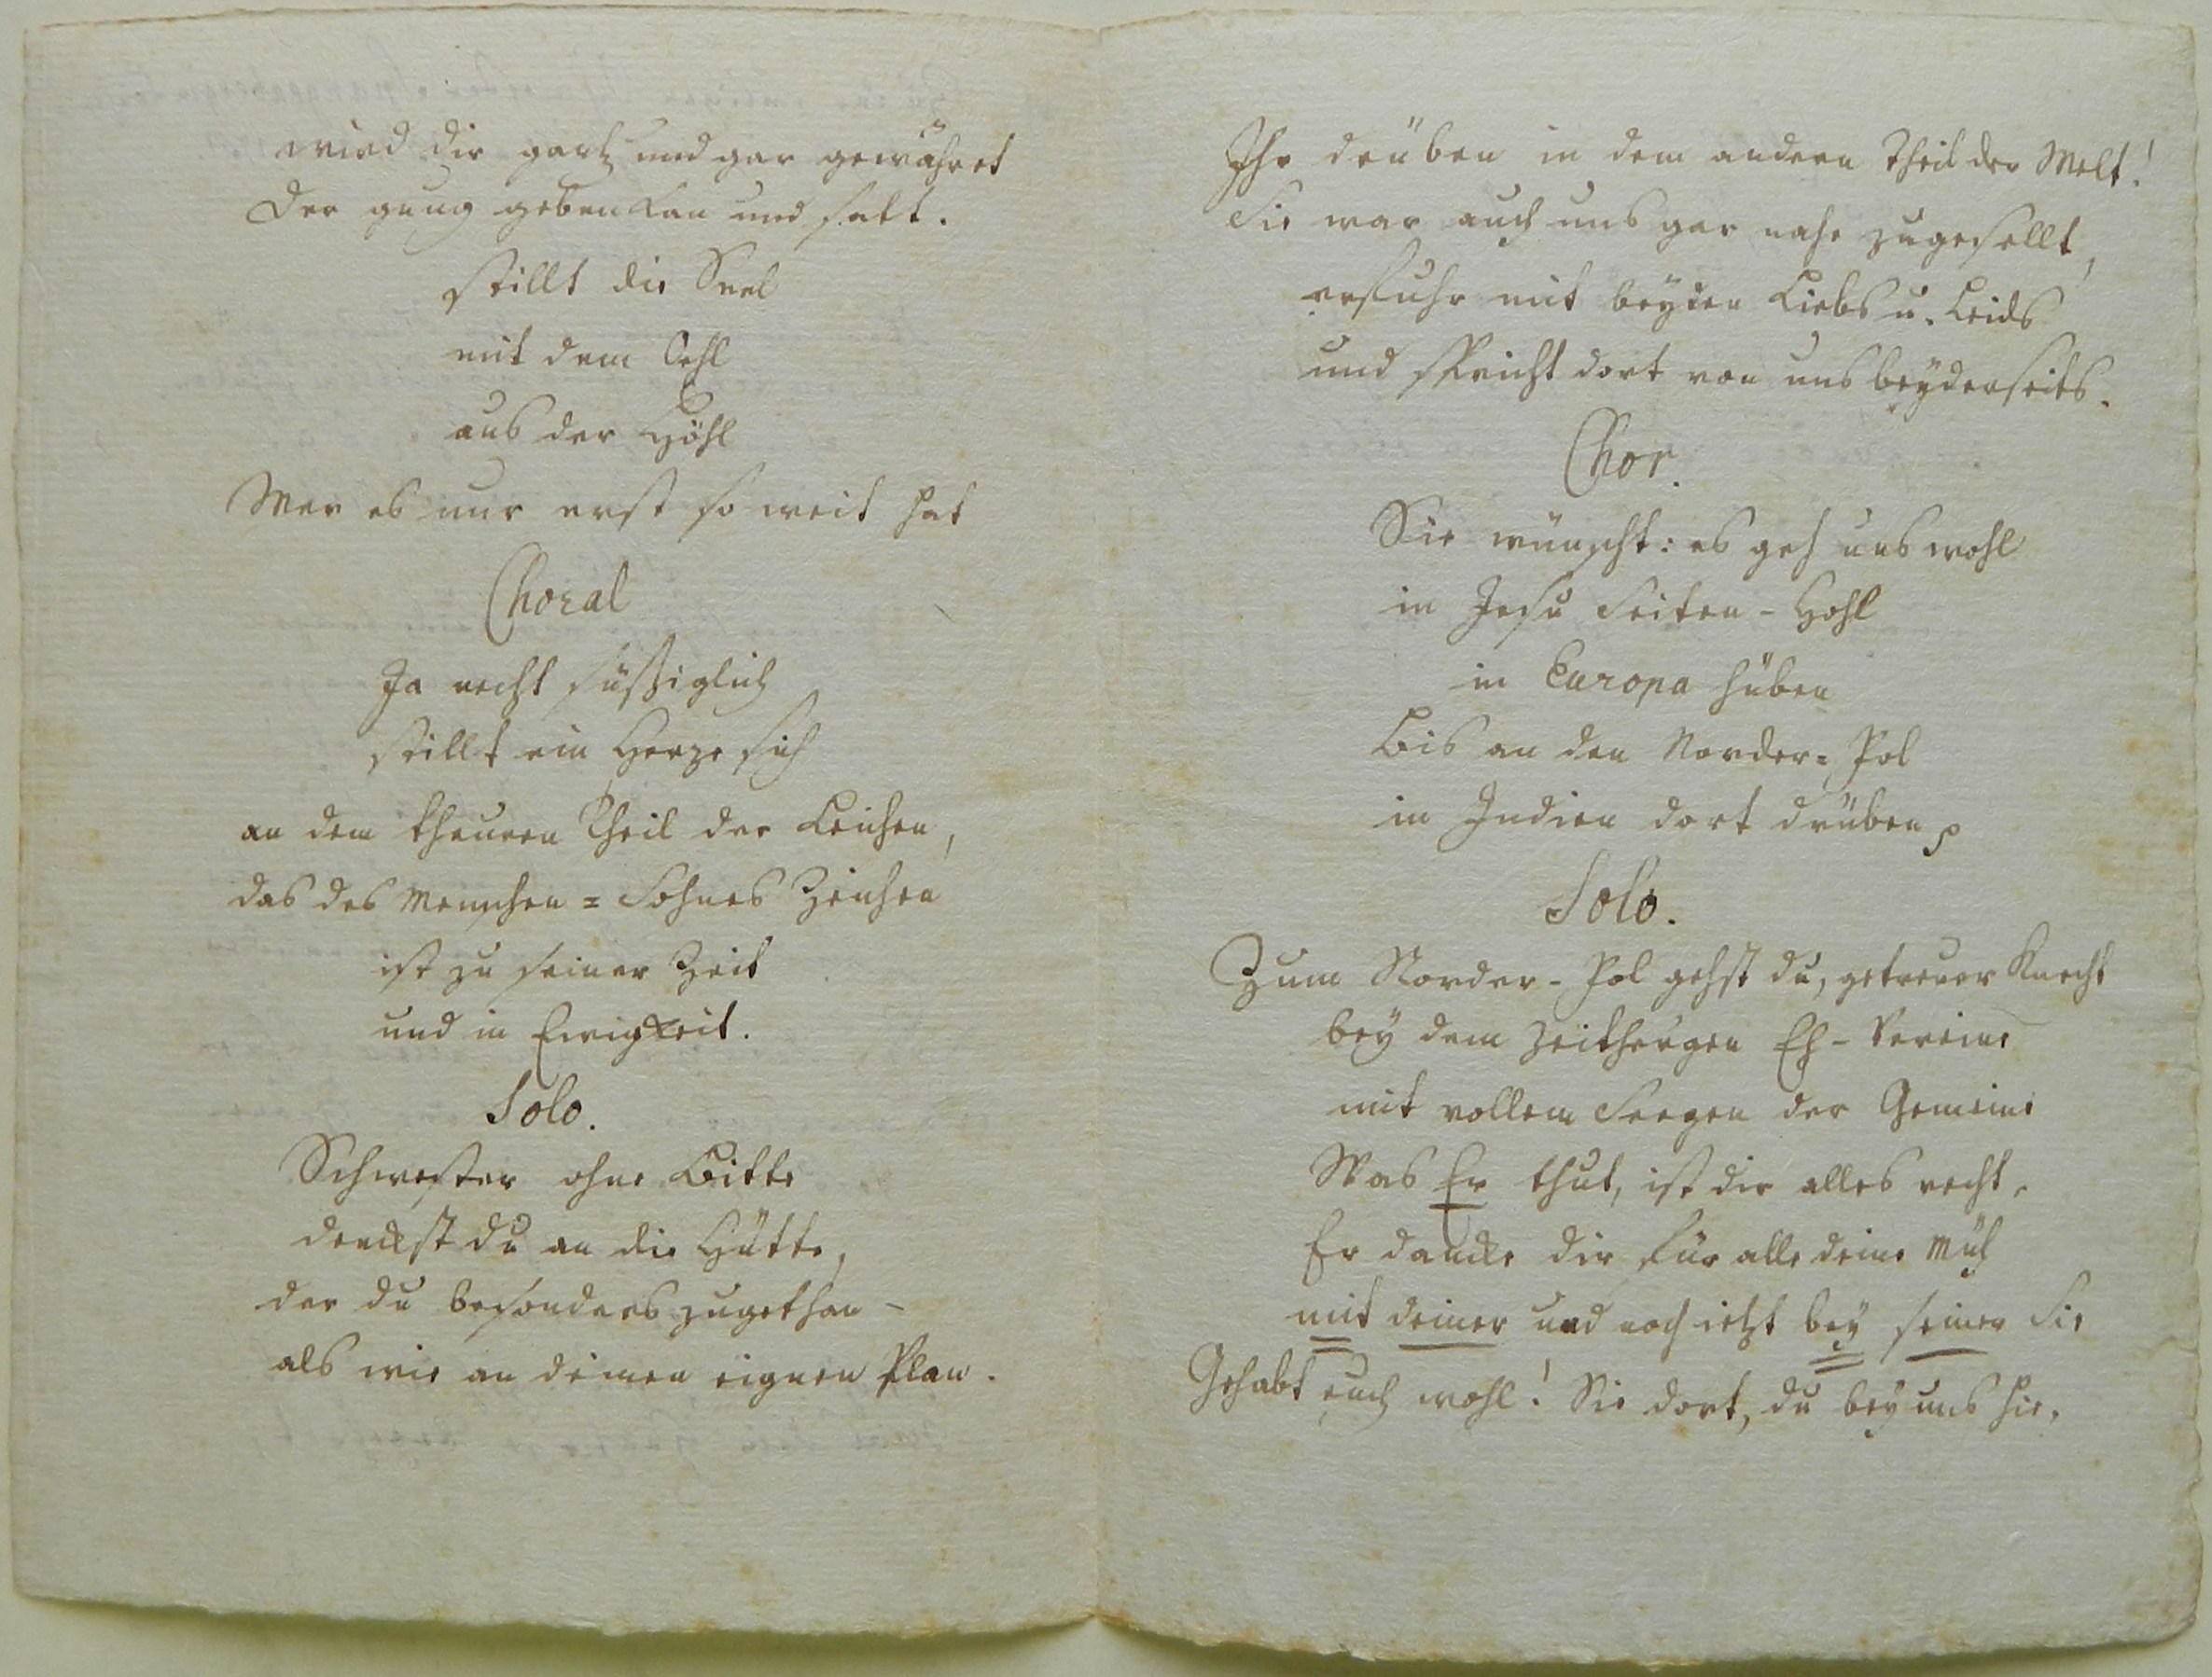 wird dir gantz und gar gewähret
der gnug geben kan und hatt.
stillt die Seel
mit dem Oehl
aus der Höhl
Wer es nur erst so weit hat
Choral
Ja recht süßiglich
stillt ein Herze sich
an dem theuren Theil der Leichen,
das des Menschen = Sohnes Zeichen
ist zu seiner Zeit
und in Ewigkeit.
Solo.
Schwester ohne Bitte
denckst du an die Hütte,
der du besonders zugethan –
als wie an deinen eignen Plan.
Ihr drüben in dem andern Theil der Welt!
Sie war auch uns gar nahe zugesellt,
erfuhr mit beyden Liebs u. Leids
und spricht dort von uns beyderseits.
Chor.
Sie wünscht: es geh uns wohl
in Jesu Seiten - Hohl
in Europa hüben
Bis an den Norder = Pol
in Indien dort drüben
Solo.
Zum Norder - Pol gehst du, getreuer Knecht
bey dem zeitherigen Eh - Vereine
mit vollem Seegen der Gemeine
Was Er thut, ist dir alles recht.
Er dancke dir für alle deine Müh
mit deiner und noch ietzt bey seiner Sie
Gehabt euch wohl! Sie dort, du bey uns hie.